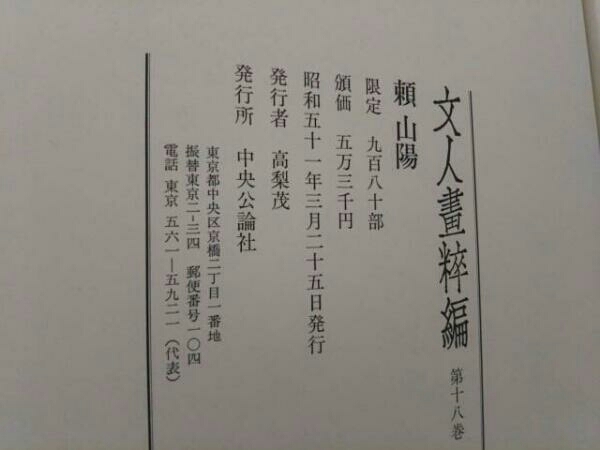 文人畫粹編 第十八巻
頼山陽
限定 九百八十部
頒価 五万三千円
昭和五十一年三月二十五日発行
発行者 高梨茂
発行所 中央公論社
東京都中央区京橋二丁目一番地
振替東京二-三四 郵便番号一〇四
電話 東京 五六一―五九二一(代表)